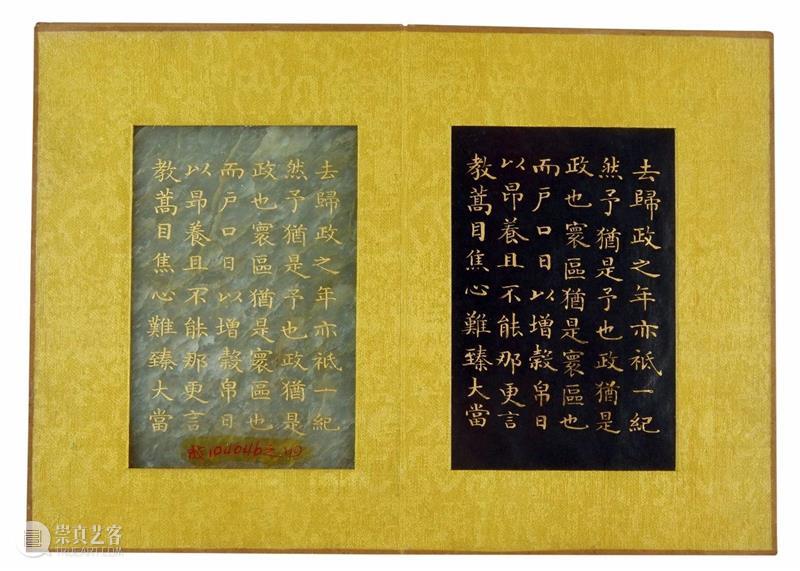 去歸政之年亦祗一紀
然予猶是予也政猶是
政也寰區猶是寰區也
而戶口日以增穀帛日
以昂養且不能那更言
教蒿目焦心難臻大當
去歸政之年亦祗一紀
然予猶是予也政猶是
政也寰區猶是寰區也
而戶口日以增穀帛日
以昂養且不能那更言
教蒿目焦心難臻大當
崇真艺客